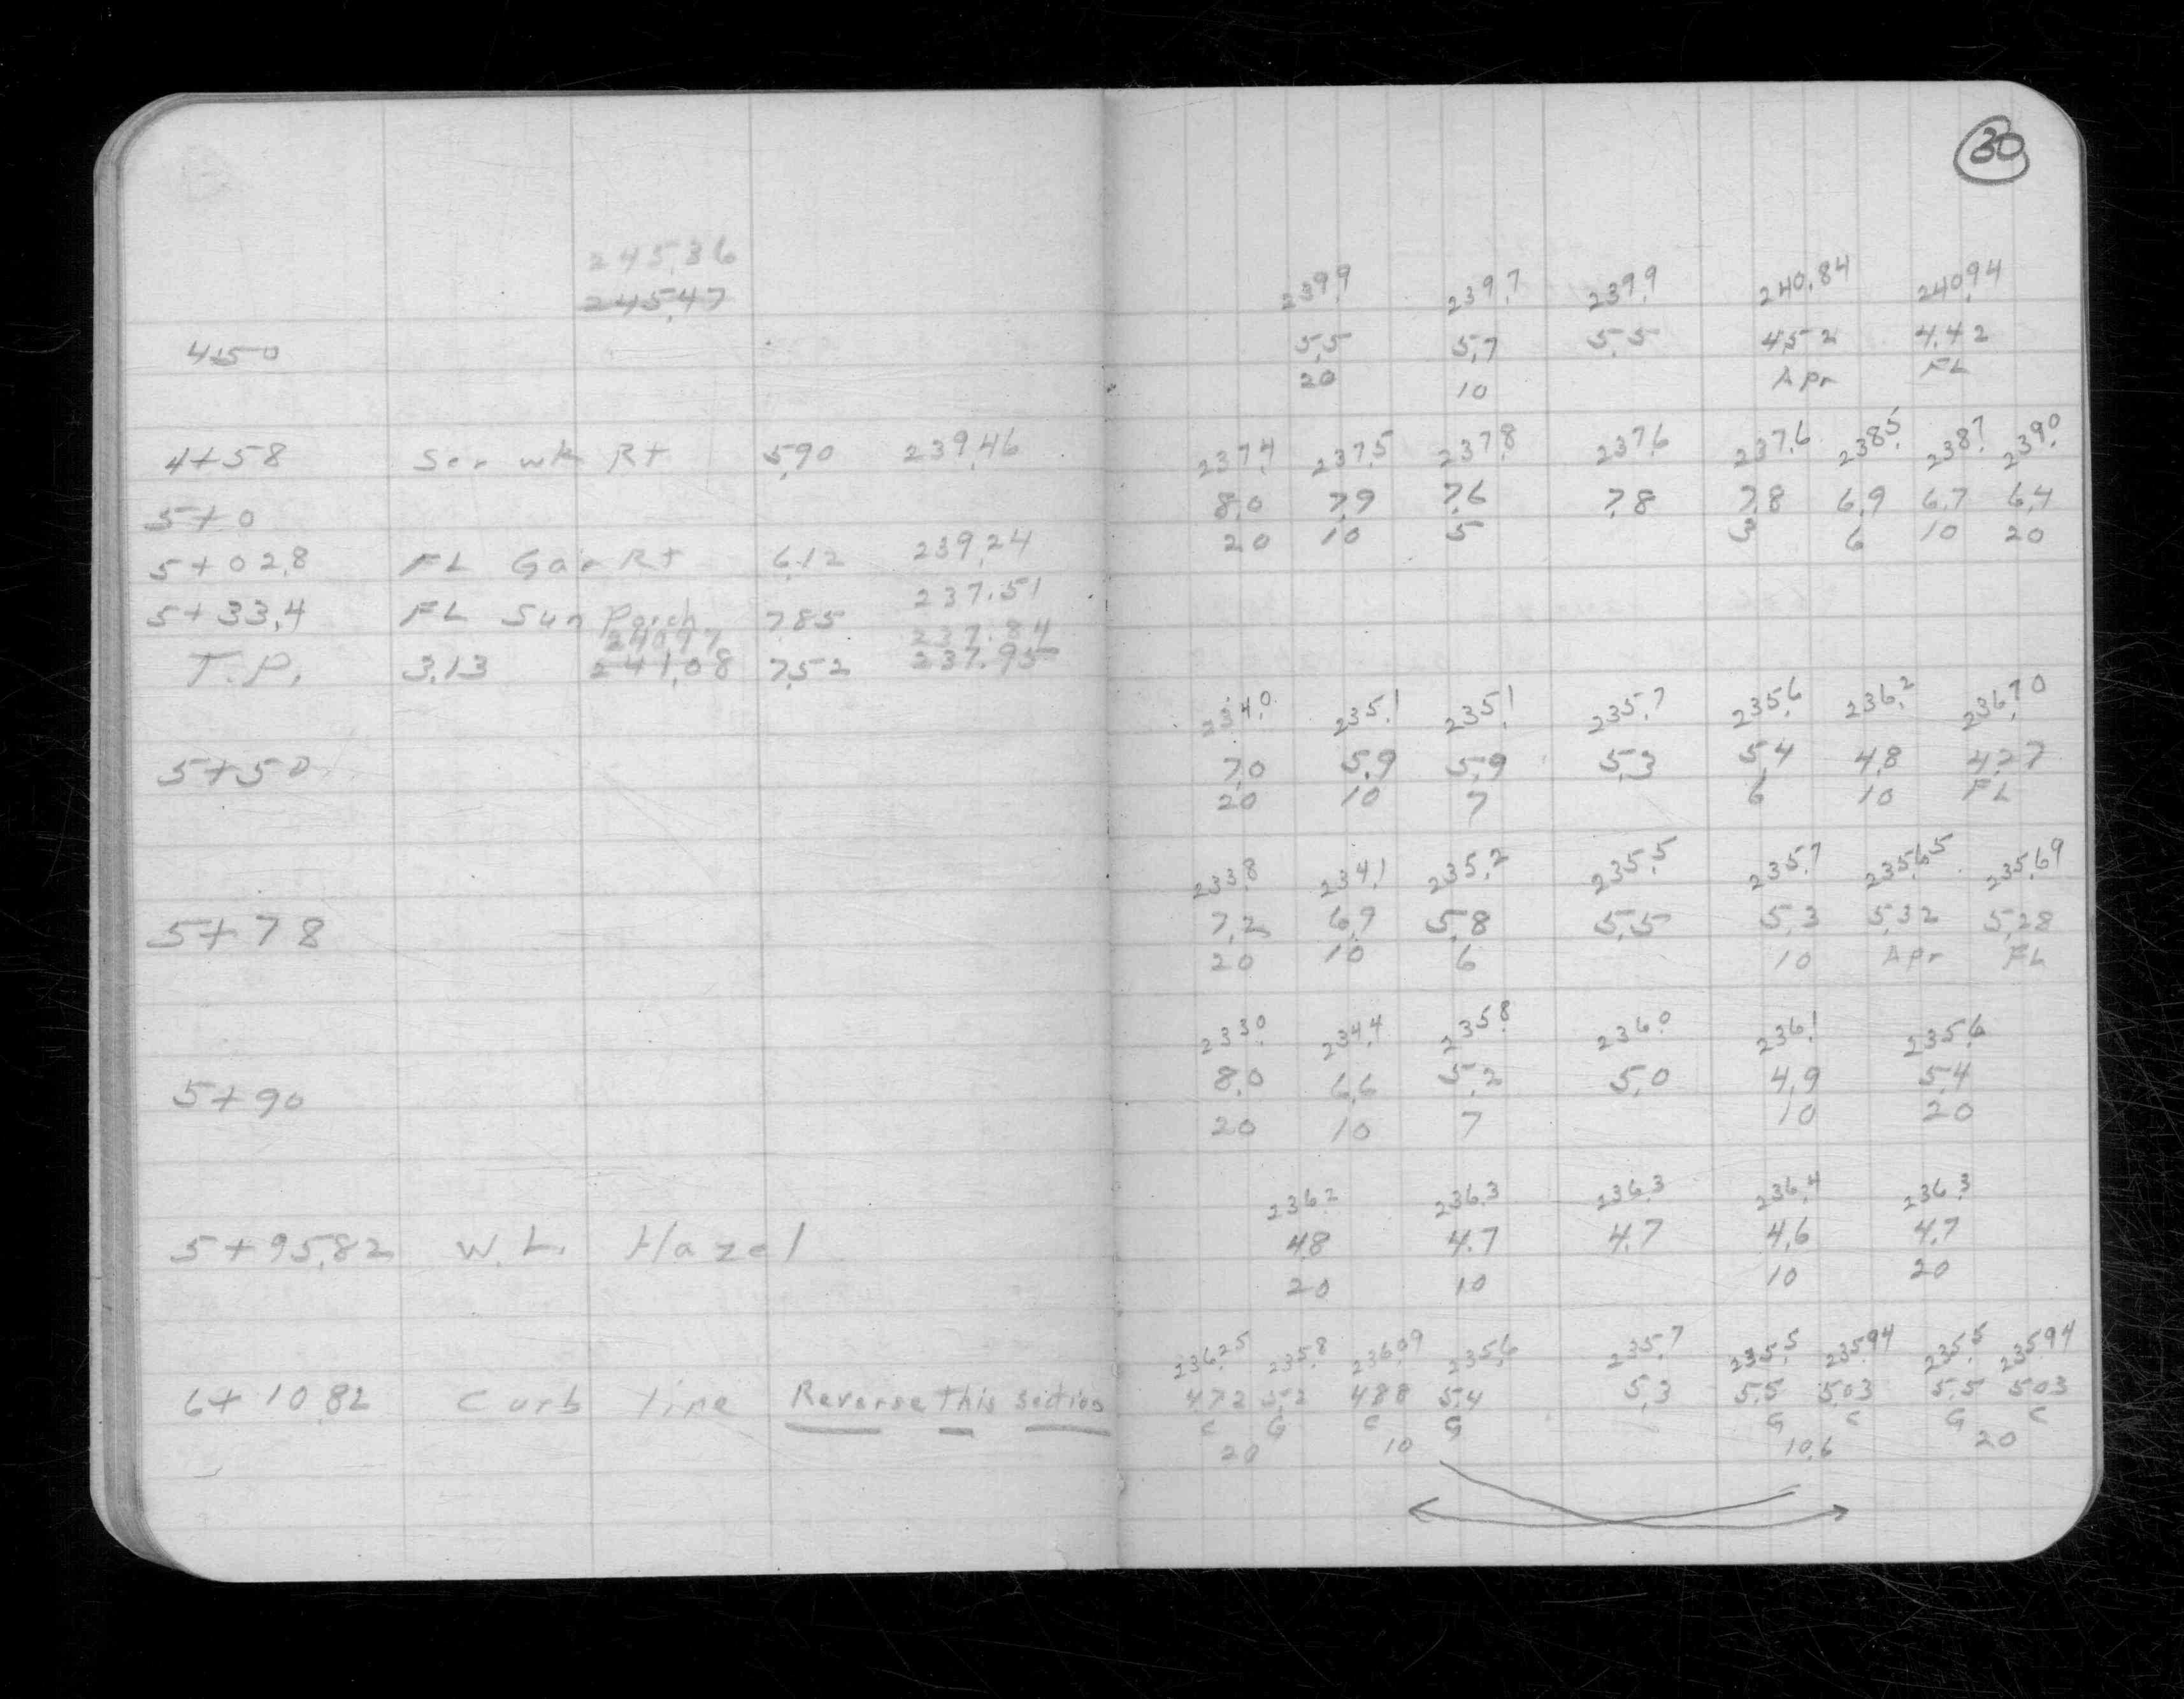 30
245.36
245.47
239.9 239.7 239.9 240.84 240.94
4+50 5.5 5.7 5.5 4.52 4.42
20 10 Apr FL
237.4 237.5 237.8 237.6 237.6 238.5 238.7 239.0
4+58 Ser wk Rt 5.90 239.46
5+0 8.0 7.9 7.6 7.8 7.8 6.9 6.7 6.4
20 10 5 3 6 10 20
5+02.8 FL Gar Rt 6.12 239.24
5+33.4 FL Sun Porch 7.85 237.51
240.97 237.84
T.P. 3.13 241.08 7.52 237.95
234.0 235.1 235.1 235.7 235.6 236.2 236.70
5+50 7.0 5.9 5.9 5.3 5.4 4.8 4.27
20 10 7 6 10 FL
233.8 234.1 235.2 235.5 235.7 235.65 235.69
5+78 7.2 6.9 5.8 5.5 5.3 5.32 5.28
20 10 6 10 Apr FL
233.0 234.4 235.8 236.0 236.1 235.6
5+90 8.0 6.6 5.2 5.0 4.9 5.4
20 10 7 10 20
236.2 236.3 236.3 236.4 236.3
5+95.82 W.L. Hazel 4.8 4.7 4.7 4.6 4.7
20 10 10 20
236.25 235.8 236.09 235.6 235.7 235.5 235.94 235.5 235.94
6+10.82 Curb line Reverse This section 4.72 5.2 4.88 5.4 5.3 5.5 5.03 5.5 5.03
C G C G G C G C
20 10 10.6 20